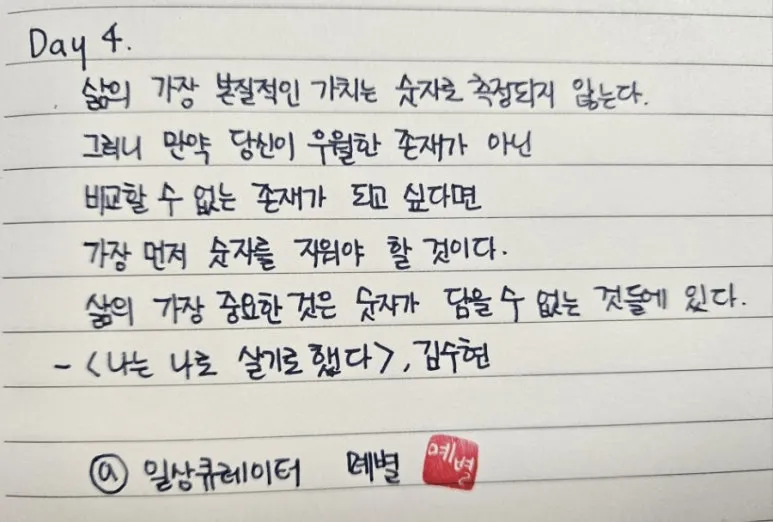 Day 4.
삶의 가장 본질적인 가치는 숫자로 측정되지 않는다.
그러니 만약 당신이 우월한 존재가 아닌
비교할 수 없는 존재가 되고 싶다면
가장 먼저 숫자를 지워야 할 것이다.
삶의 가장 중요한 것은 숫자가 담을 수 없는 것들에 있다.
- <나는 나로 살기로 했다>, 김수현
@ 일상큐레이터 예별 예별